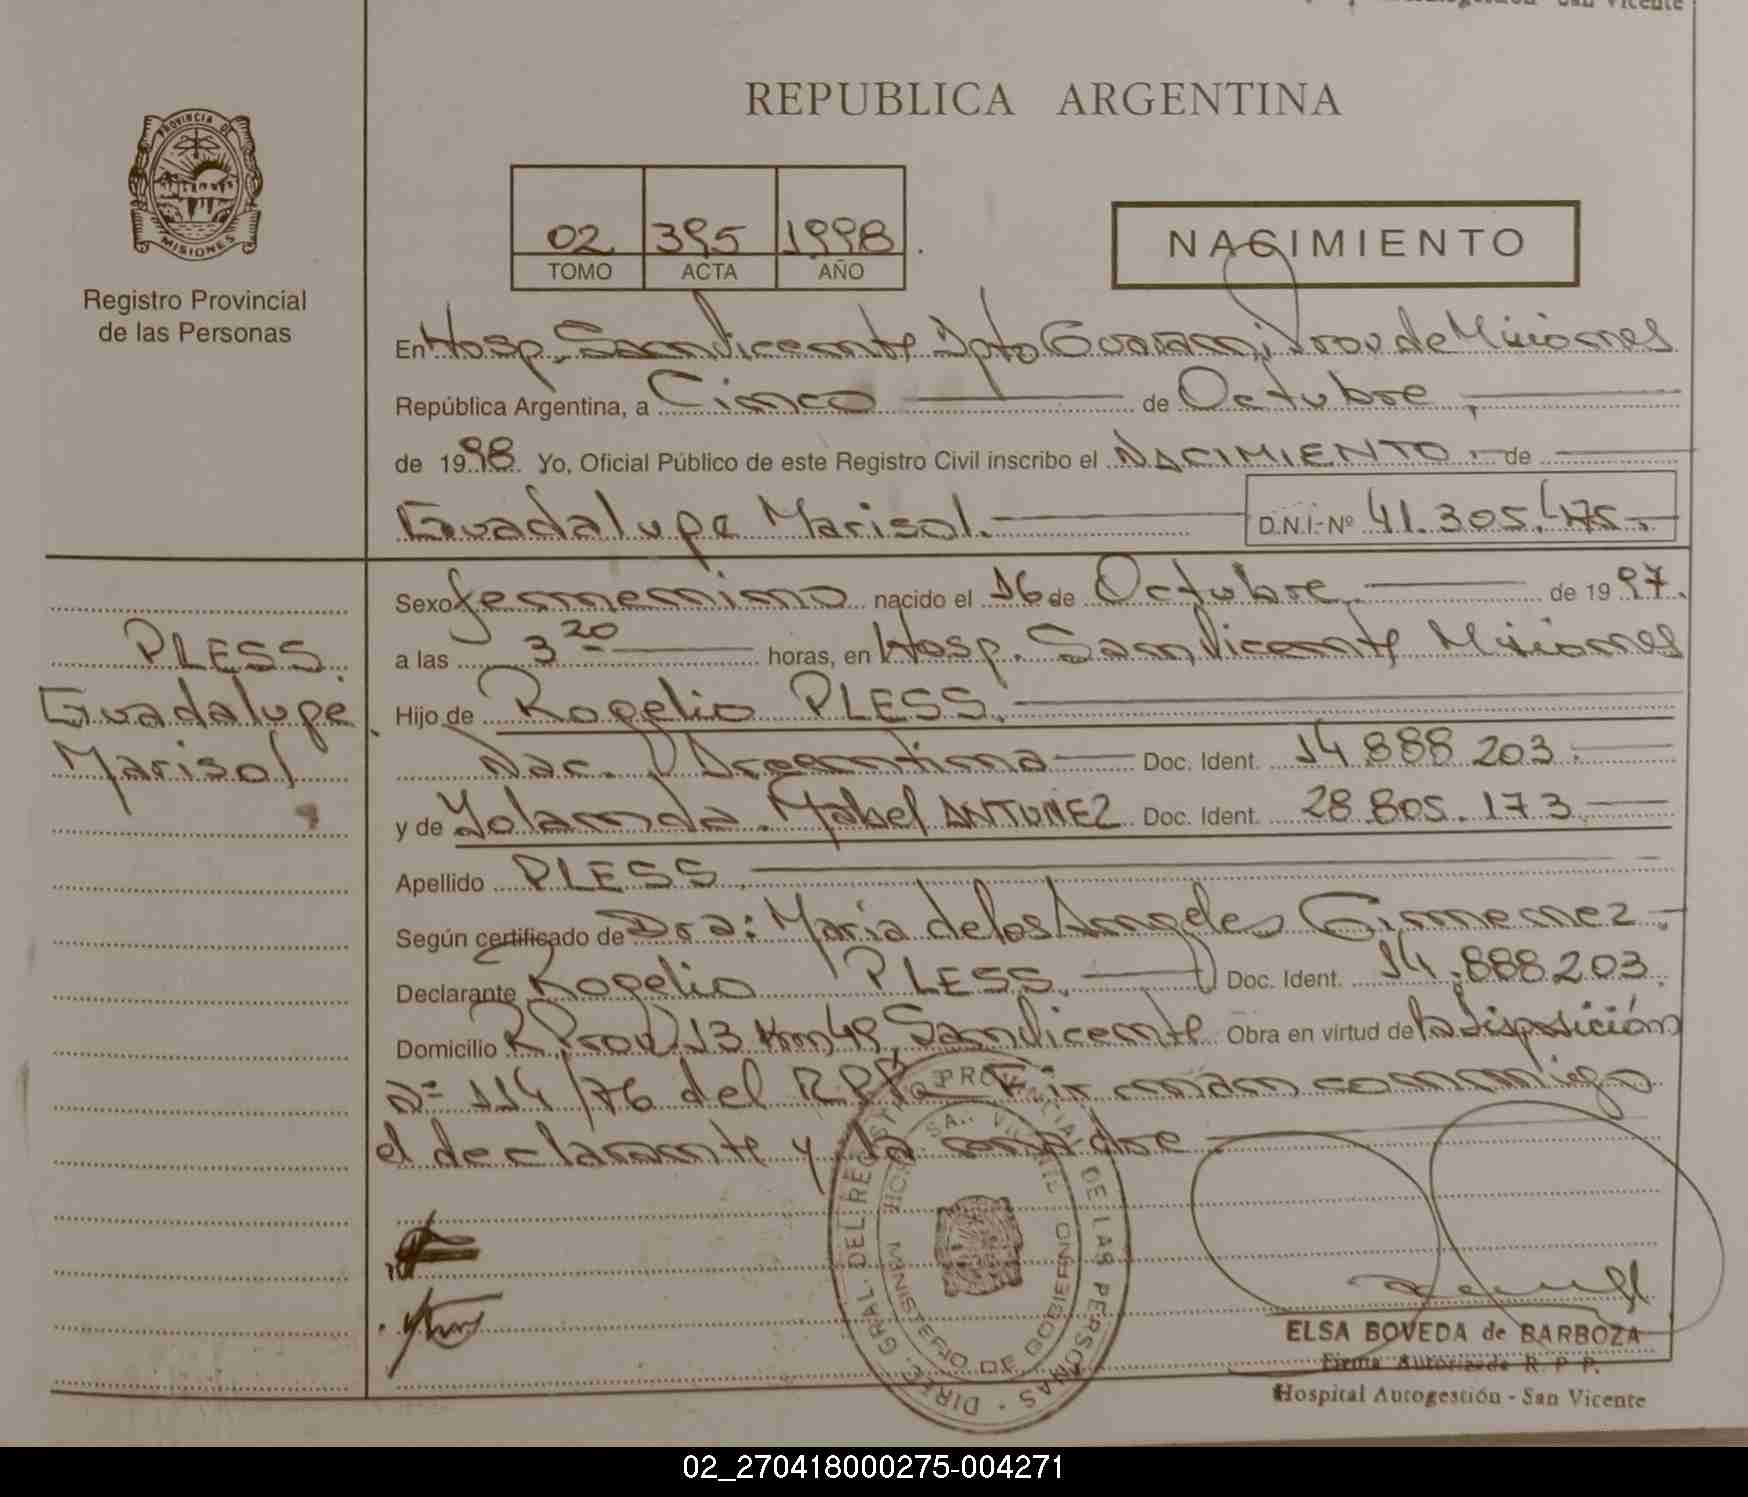 San Vicente
REPUBLICA ARGENTINA
PROVINCIA DE
MISIONES
Registro Provincial
de las Personas
02 395 1998
TOMO ACTA AÑO
NACIMIENTO
En Hosp. San Vicente Dpto Guarani Prov de Misiones
República Argentina, a Cinco de Octubre,
de 1998. Yo, Oficial Público de este Registro Civil inscribo el NACIMIENTO.- de
Guadalupe Marisol. D.N.I.-Nº 41.305.475-
Sexo femenino nacido el 16 de Octubre. de 1997.
a las 3 20 horas, en Hosp. San Vicente Misiones
Hijo de Rogelio PLESS.
Nac. Argentina Doc. Ident. 14.888.203.
y de Yolanda Mabel ANTUNEZ Doc. Ident. 28.805.173.
Apellido PLESS.
Según certificado de Dra: Maria de los Angeles Gimenez.-
Declarante Rogelio PLESS. Doc. Ident. 14.888.203.
Domicilio R. Prov. 13 Km 49 San Vicente Obra en virtud de la disposición
nº 114/76 del RPP. Firman conmigo
el declarante y la madre
PLESS.
Guadalupe
Marisol
DIREC. GRAL. DEL REGISTRO PROVINCIAL DE LAS PERSONAS
MINISTERIO DE GOBIERNO
ELSA BOVEDA de BARBOZA
Firma Autorizada R. P. P.
Hospital Autogestión - San Vicente
02_270418000275-004271